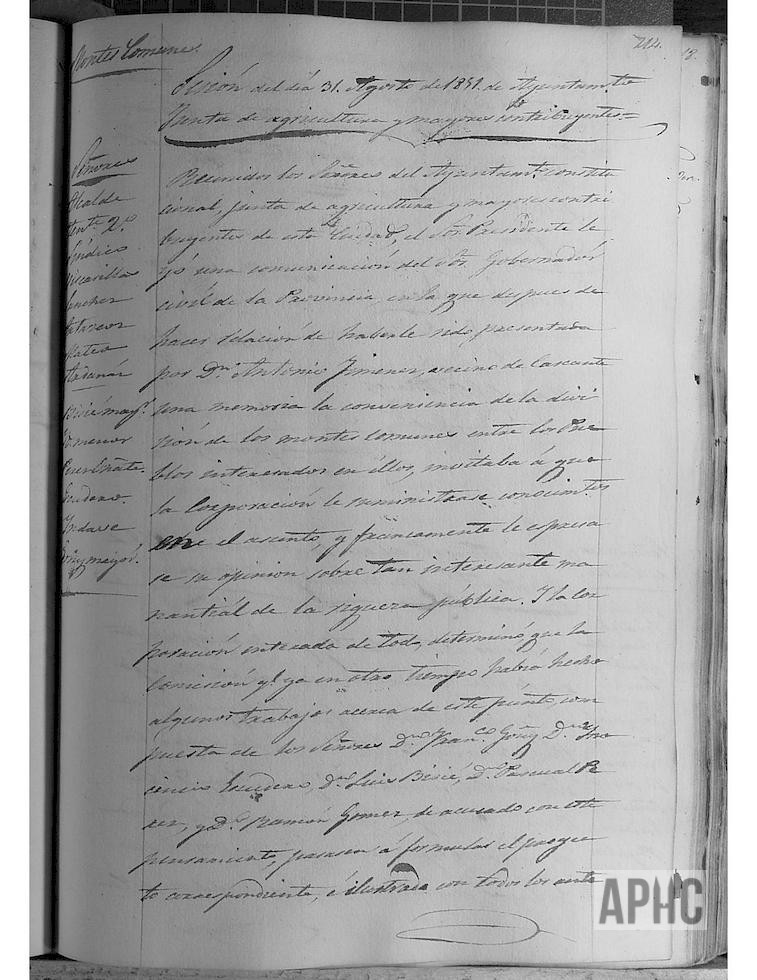 214.
18.
Montes Comunes.
Sesión del día 31. Agosto de 1851. de Ayuntam.to
Junta de agricultura y mayores contribuyentes.=
Señores
Alcalde
Ten.te 2.º
Síndico
Mateo
menor
Reunidos los Señores del Ayuntam.to constitu
cional, junta de agricultura y mayores contri
buyentes de esta Ciudad, el Sor. Presidente le
yó una comunicación del Sor. Gobernador
civil de la Provincia en la que despues de
hacer relación de haberle sido presentada
por Dn. Antonio Jimenez, vecino de Cascante
una memoria la conveniencia de la divi
sión de los montes comunes entre los Pue
blos interesados en éllos, invitaba á que
la Corporación le suministrase conocim.tos
el asunto, y francamente le espresa
se su opinion sobre tan interesante ma
nantiál de la riqueza pública. Y la Cor
poración enterada de todo, determinó que la
Comisión q.e ya en otro tiempo había hecho
algunos trabajos acerca de este punto, com
puesta de los Señores Dn. Fran.co Goñi, Dn.
Dn. Luis Bisié, Dn. Pascual Pe
rez, y Dn. Ramón Gomez de acuerdo con este
pensamiento, pasasen á formular el proyec
to correspondiente, é ilustrada con todos los ante
APHC